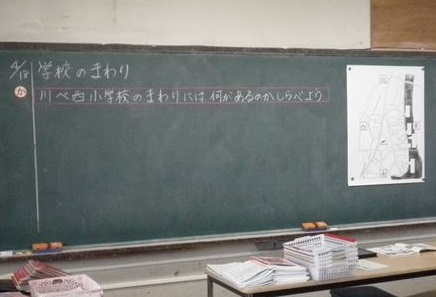 学校のまわり
か 川べ西小学校のまわりには何があるのかしらべよう